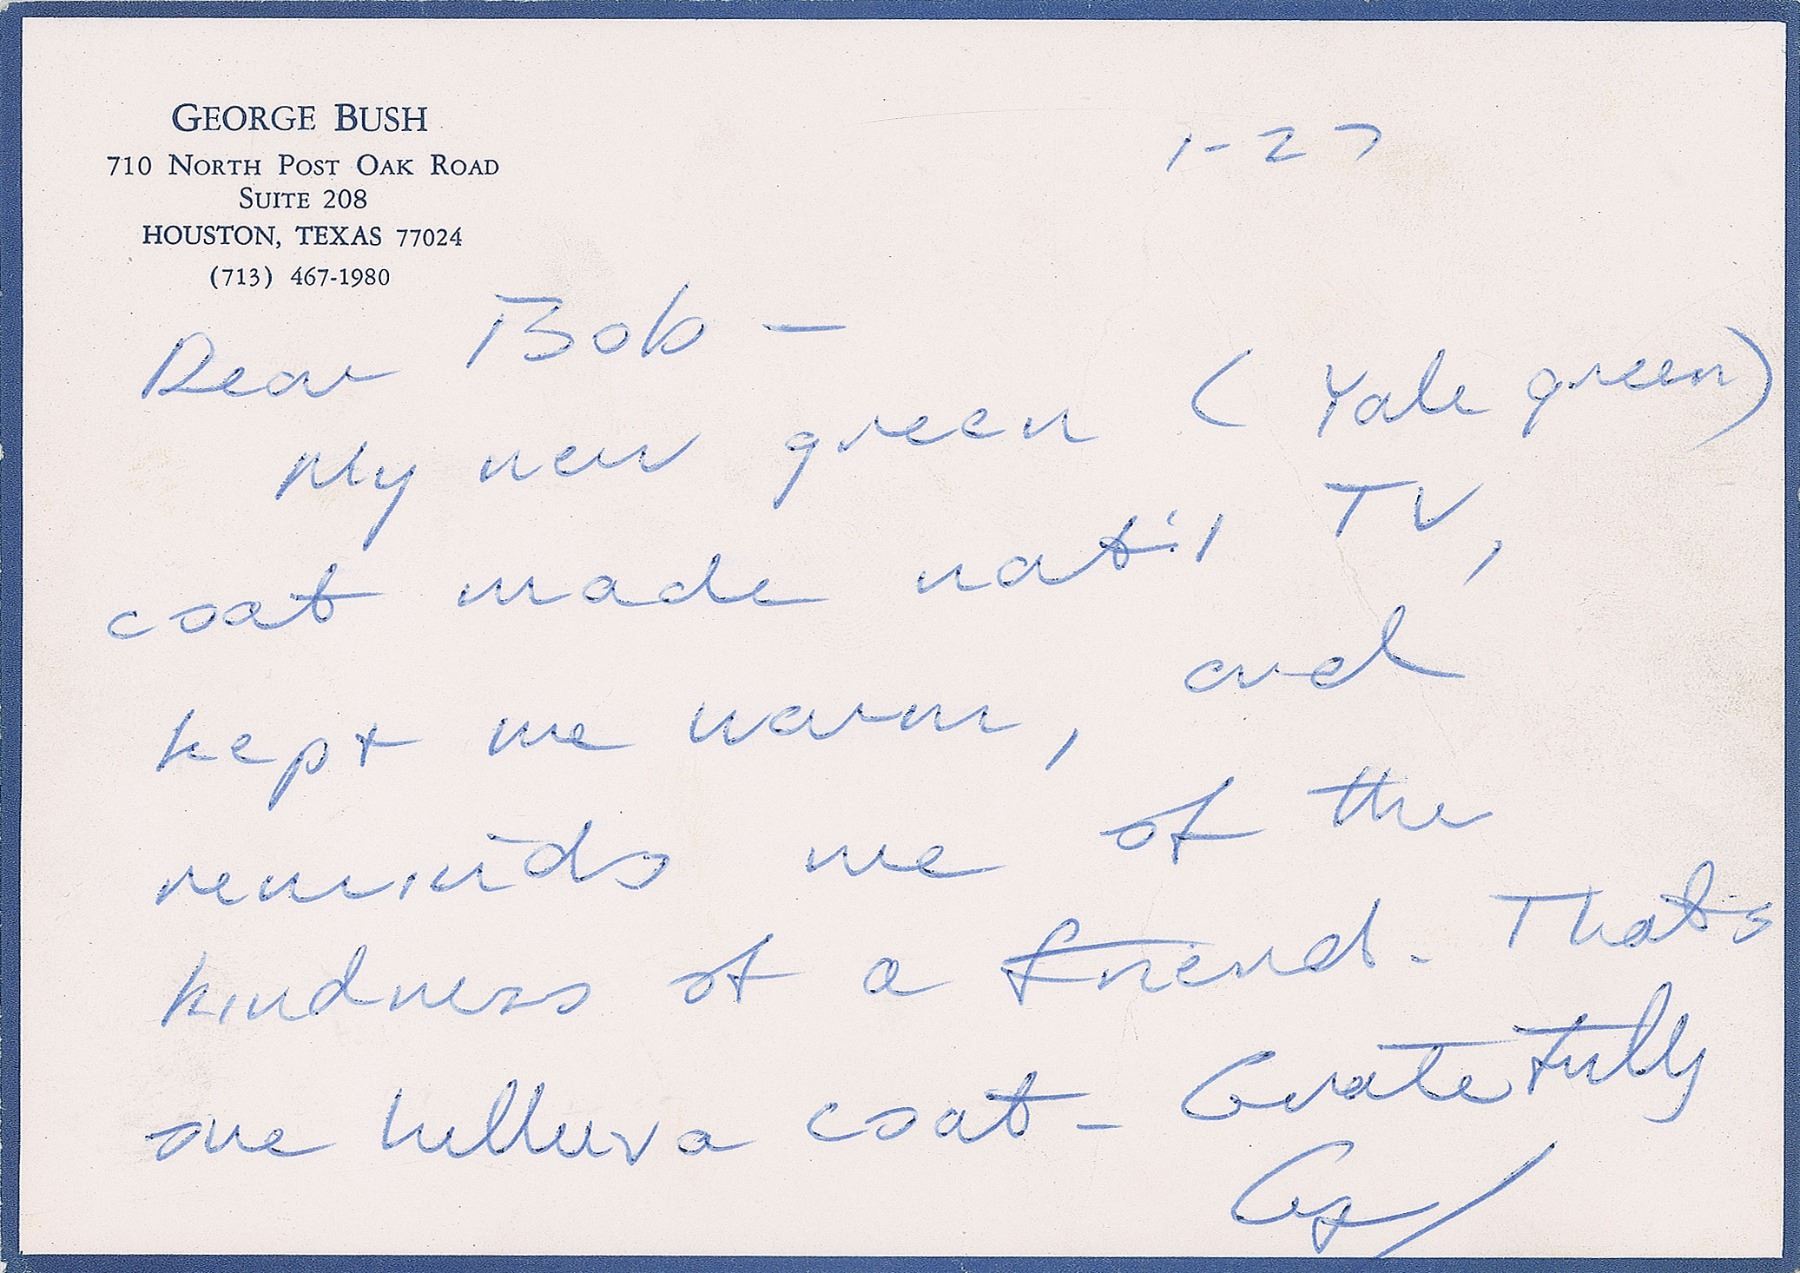 GEORGE BUSH
710 NORTH POST OAK ROAD
SUITE 208
HOUSTON, TEXAS 77024
(713) 467-1980
1-27
Dear Bob —
My new green (Yale green)
coat made nat'l TV,
kept me warm, and
reminds me of the
kindness of a friend. That's
one helluva coat - Gratefully